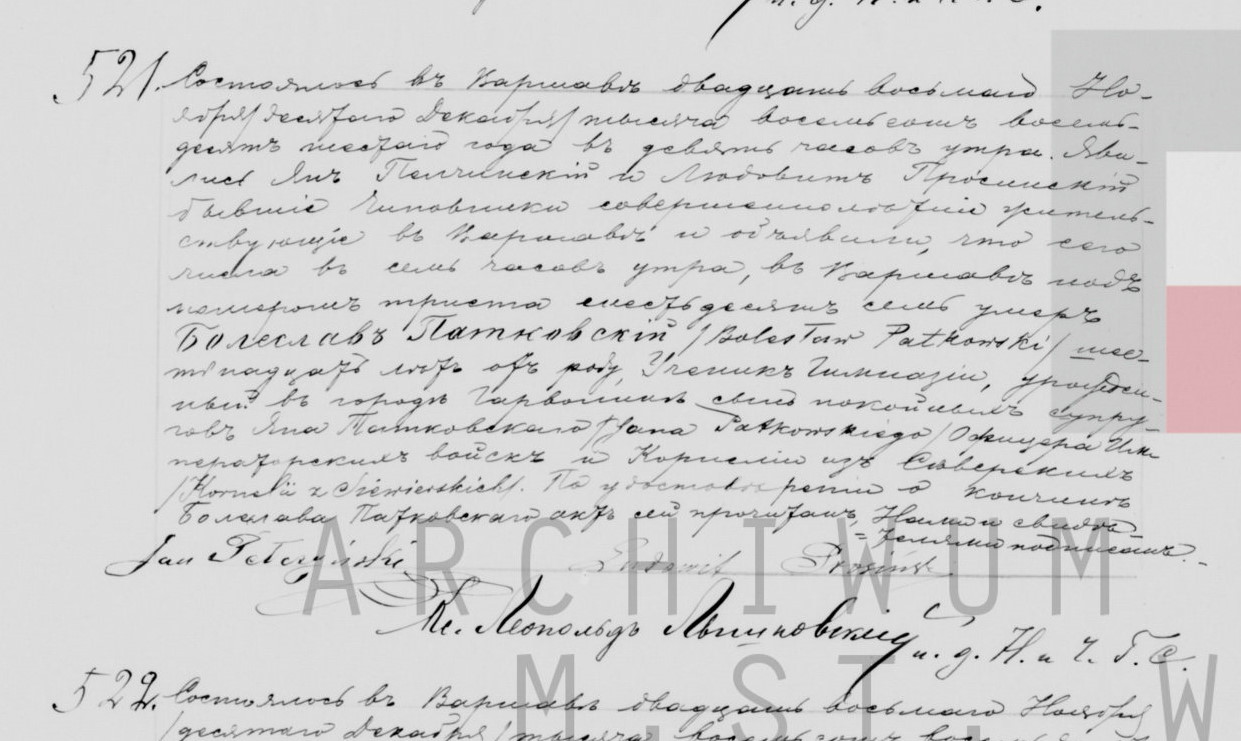 и. д. Н. и Ч. Г. С.
521. Состоялось въ Варшавѣ двадцать восьмаго Но-
ября/десятаго Декабря/ тысяча восемьсотъ восемь-
десятъ шестаго года въ девять часовъ утра. Яви-
лись Янъ Пелчинскій и Людовитъ Просинскій
бывшіе Чиновники совершеннолѣтніе житель-
ствующіе въ Варшавѣ и объявили, что сего
числа въ семь часовъ утра, въ Варшавѣ подъ
номеромъ триста шестьдесятъ семь умеръ
Болеславъ Патковскій /Bolesław Patkowski/ шес-
тнадцать лѣтъ отъ роду, Ученикъ Гимназіи, урожден-
ный въ городѣ Гарволинѣ сынъ покойныхъ супру-
говъ Яна Патковскаго /Jana Patkowskiego/ Офицера Им-
ператорскихъ войскъ и Корнеліи изъ Сѣверскихъ
/Kornelii z Siewierskich/. По удостовѣреніи о кончинѣ
Болеслава Патковскаго актъ сей прочитанъ, Нами и свидѣ-
телями подписанъ.
Jan Pełczyński Ludowit Prosiński
Кс. Леопольдъ Лышковскій
и. д. Н. и Ч. Г. С.
ARCHIWUM
M. ST. W
522. Состоялось въ Варшавѣ двадцать восьмаго Ноября
/десятаго Декабря/ тысяча восемьсотъ